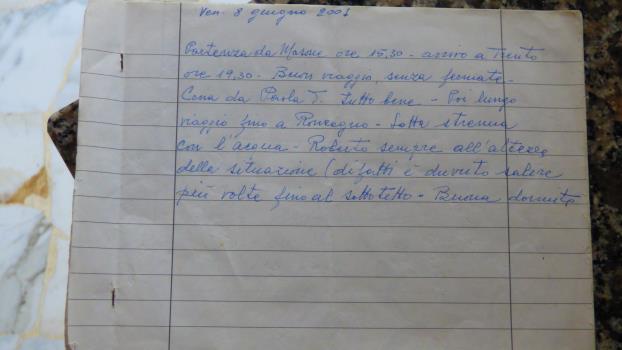 Ven. 8 giugno 2001
Partenza da Masone ore 15,30 - arrivo a Trento
ore 19,30 - Buon viaggio, senza fermate -
Cena da Paola T. tutto bene - Poi lungo
viaggio fino a Roncegno - Lotta strenua
con l'acqua - Roberto sempre all'altezza
della situazione (difatti è dovuto salire
più volte fino al sottotetto - Buona dormita